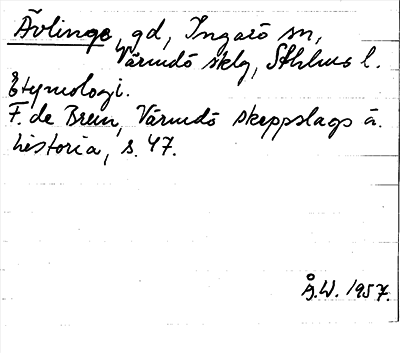 Ävlinge, gd, Ingarö sn,
Värmdö sklg, Sthlms l.
Etymologi.
F. de Brun, Värmdö skeppslags ä.
historia, s. 47.
Å.W. 1957.